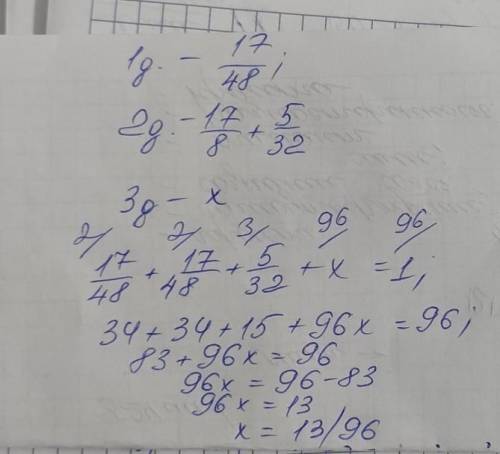 1g. - 17/48;
2g. - 17/8 + 5/32
3g - x
2/ 2/ 3/ 96/ 96/
17/48 + 17/48 + 5/32 + x = 1;
34 + 34 + 15 + 96x = 96;
83 + 96x = 96
96x = 96 - 83
96x = 13
x = 13/96